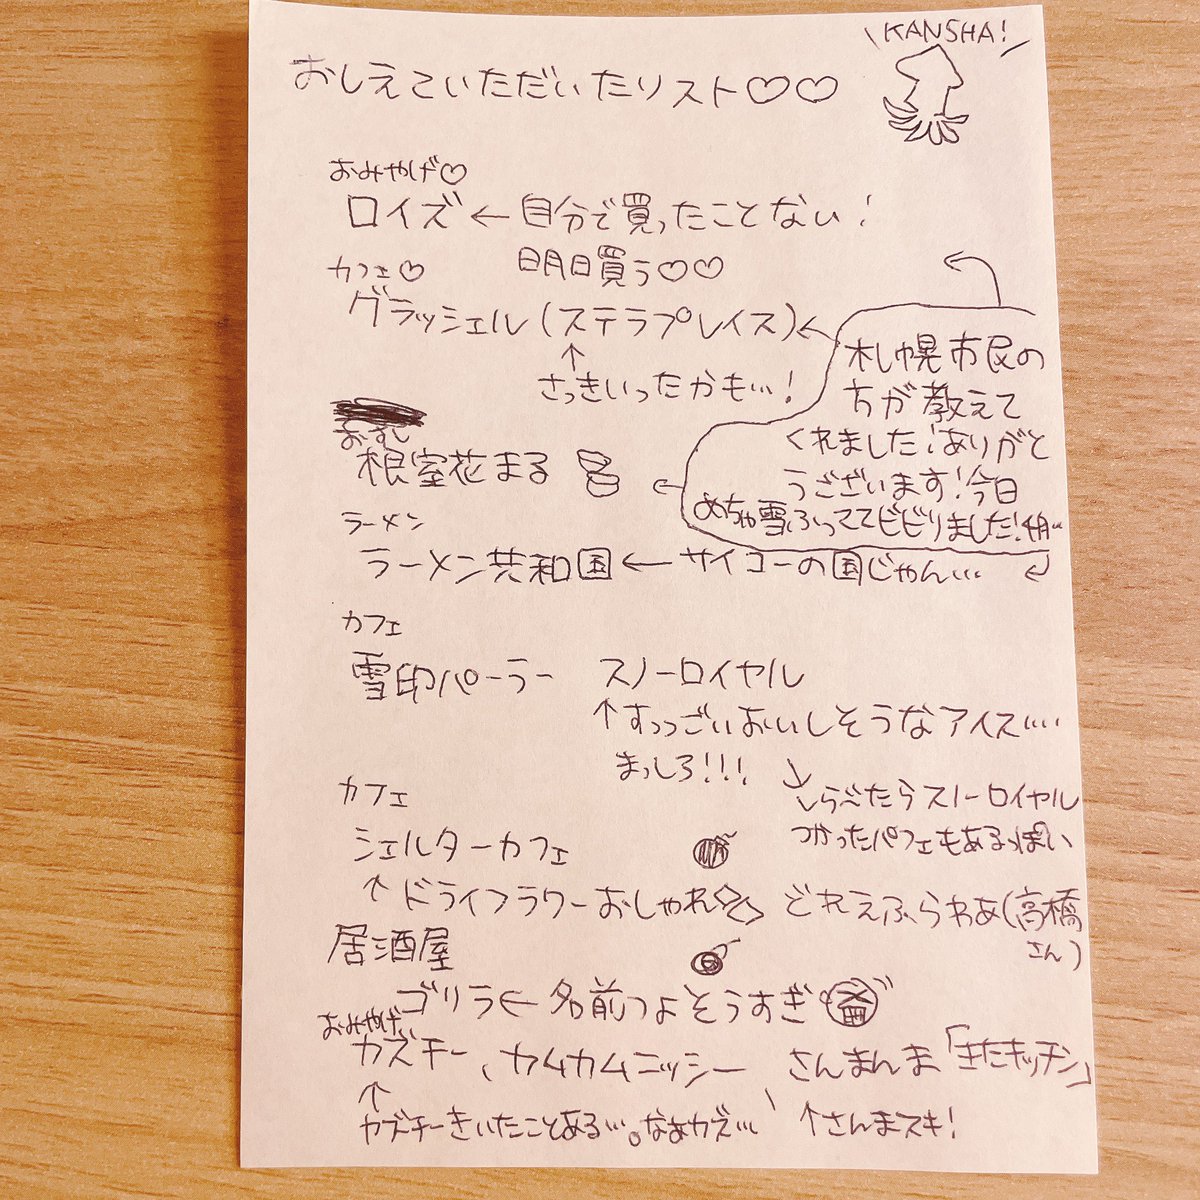 KANSHA!
おしえていただいたリスト♡♡
おみやげ♡
ロイズ←自分で買ったことない!
明日買う♡♡
カフェ♡
グラッシェル(ステラプレイス)
↑
さっきいったかも…!
札幌市民の
方が教えて
くれました!ありがと
うございます!今日
めちゃ雪ふっててビビりました!
おすし
根室花まる
ラーメン
ラーメン共和国←サイコーの国じゃん…
カフェ
雪印パーラー スノーロイヤル
↑すっっごいおいしそうなアイス….
まっしろ!!!
↓しらべたらスノーロイヤル
つかったパフェもあるっぽい
カフェ
シェルターカフェ
↑ドライフラワーおしゃれ どれえふらわあ(高橋
さん)
居酒屋
ゴリラ←名前つよそうすぎ
おみやげ
カズチー、カムカムニッシー さんまんま「きたキッチン」
↑
カズチーきいたことある…。なあカズ… ↑さんまスキ!